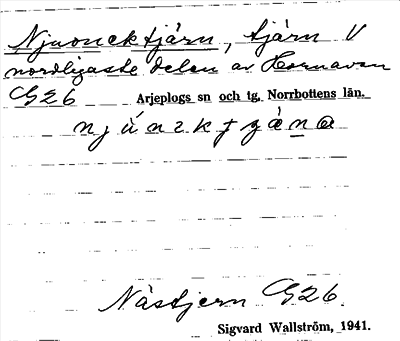 Njuoncktjärn, tjärn V
nordligaste delen av Hornavan
G26 Arjeplogs sn och tg. Norrbottens län.
Nästjern G26.
Sigvard Wallström, 1941.